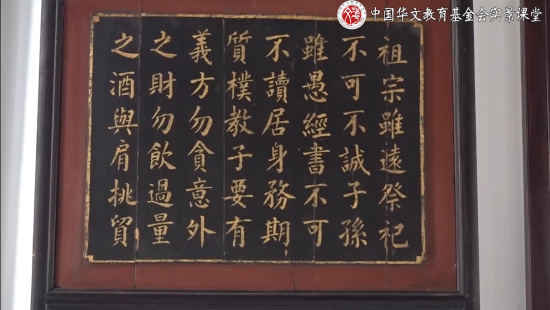 中国华文教育基金会实景课堂
祖宗雖遠祭祀
不可不誠子孫
雖愚經書不可
不讀居身務期
質樸教子要有
義方勿貪意外
之財勿飲過量
之酒與肩挑貿